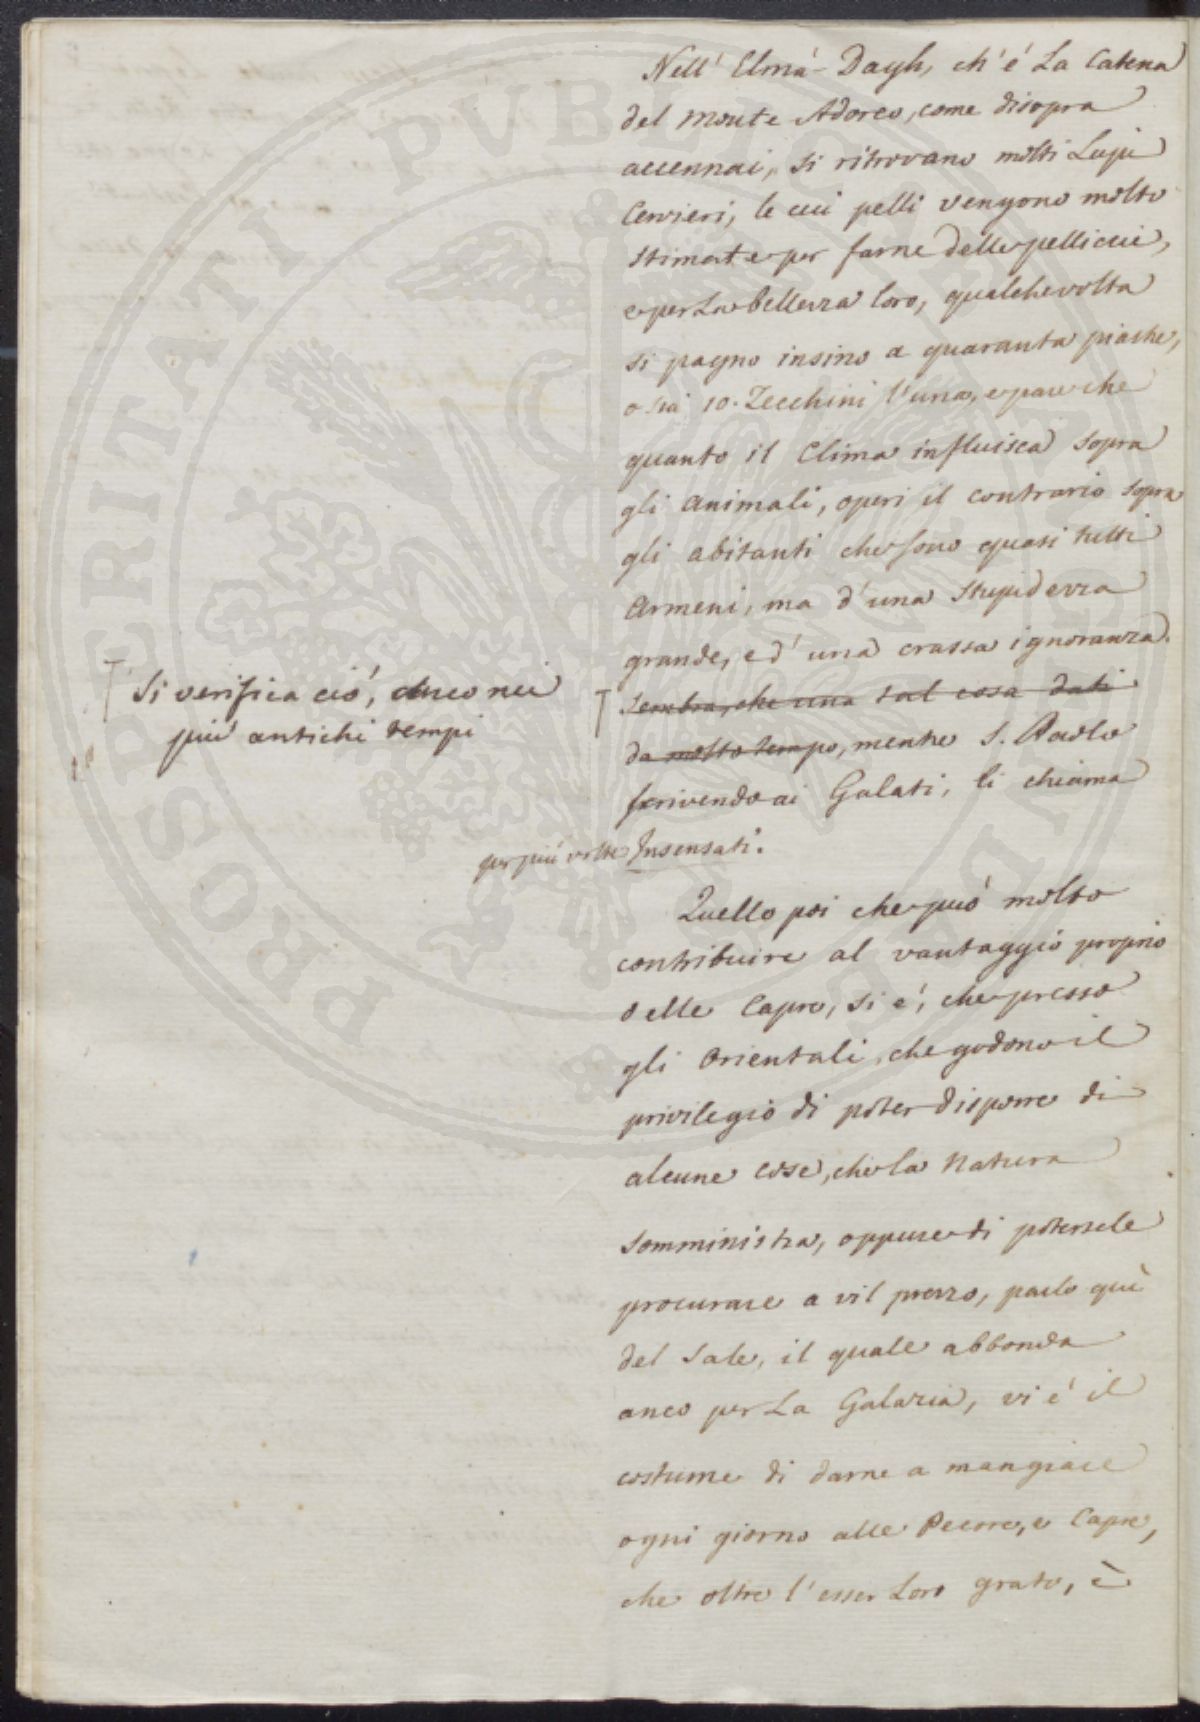 Nell' Elmà-Dagh, ch'é La Catena
del monte Adoreo, come disopra
accennai, si ritrovano molti Lupi
Cervieri, le cui pelli vengono molto
stimate per farne delle pelliccie,
e per La bellezza loro, qualche volta
si pagno insino a quaranta piastre,
o sia 10. Zecchini l'una, e pare che
quanto il Clima influisca sopra
gli animali, operi il contrario sopra
gli abitanti che sono quasi tutti
Armeni, ma d'una stupidezza
grande, e d'una crassa ignoranza.
Si verifica ció, anco nei
piú antichi tempi
Sembra, che una tal cosa dati
da molto tempo, mentre S. Paolo
scrivendo ai Galati, li chiama
per piú volte Insensati.
Quello poi che può molto
contribuire al vantaggio proprio
delle Capre, si é, che presso
gli Orientali, che godono il
privilegio di poter disporre di
alcune cose, che la Natura
somministra, oppure di potersele
procurare a vil prezzo, parlo quì
del Sale, il quale abbonda
anco per La Galazia, vi é il
costume di darne a mangiare
ogni giorno alle Pecore, e Capre,
che oltre l'esser Loro grato, è
PROSPERITATI PVBLICAE